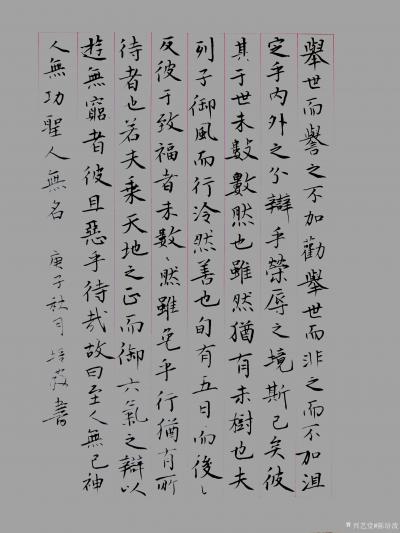 舉世而譽之不加勸舉世而非之而不加沮
定乎內外之分辯乎榮辱之境斯已矣彼
其于世未數數然也雖然猶有未樹也夫
列子御風而行泠然善也旬有五日而後
反彼于致福者未數〻然雖免乎行猶有所
待者也若夫乘天地之正而御六氣之辯以
遊無窮者彼且惡乎待哉故曰至人無己神
人無功聖人無名 庚子秋月培書